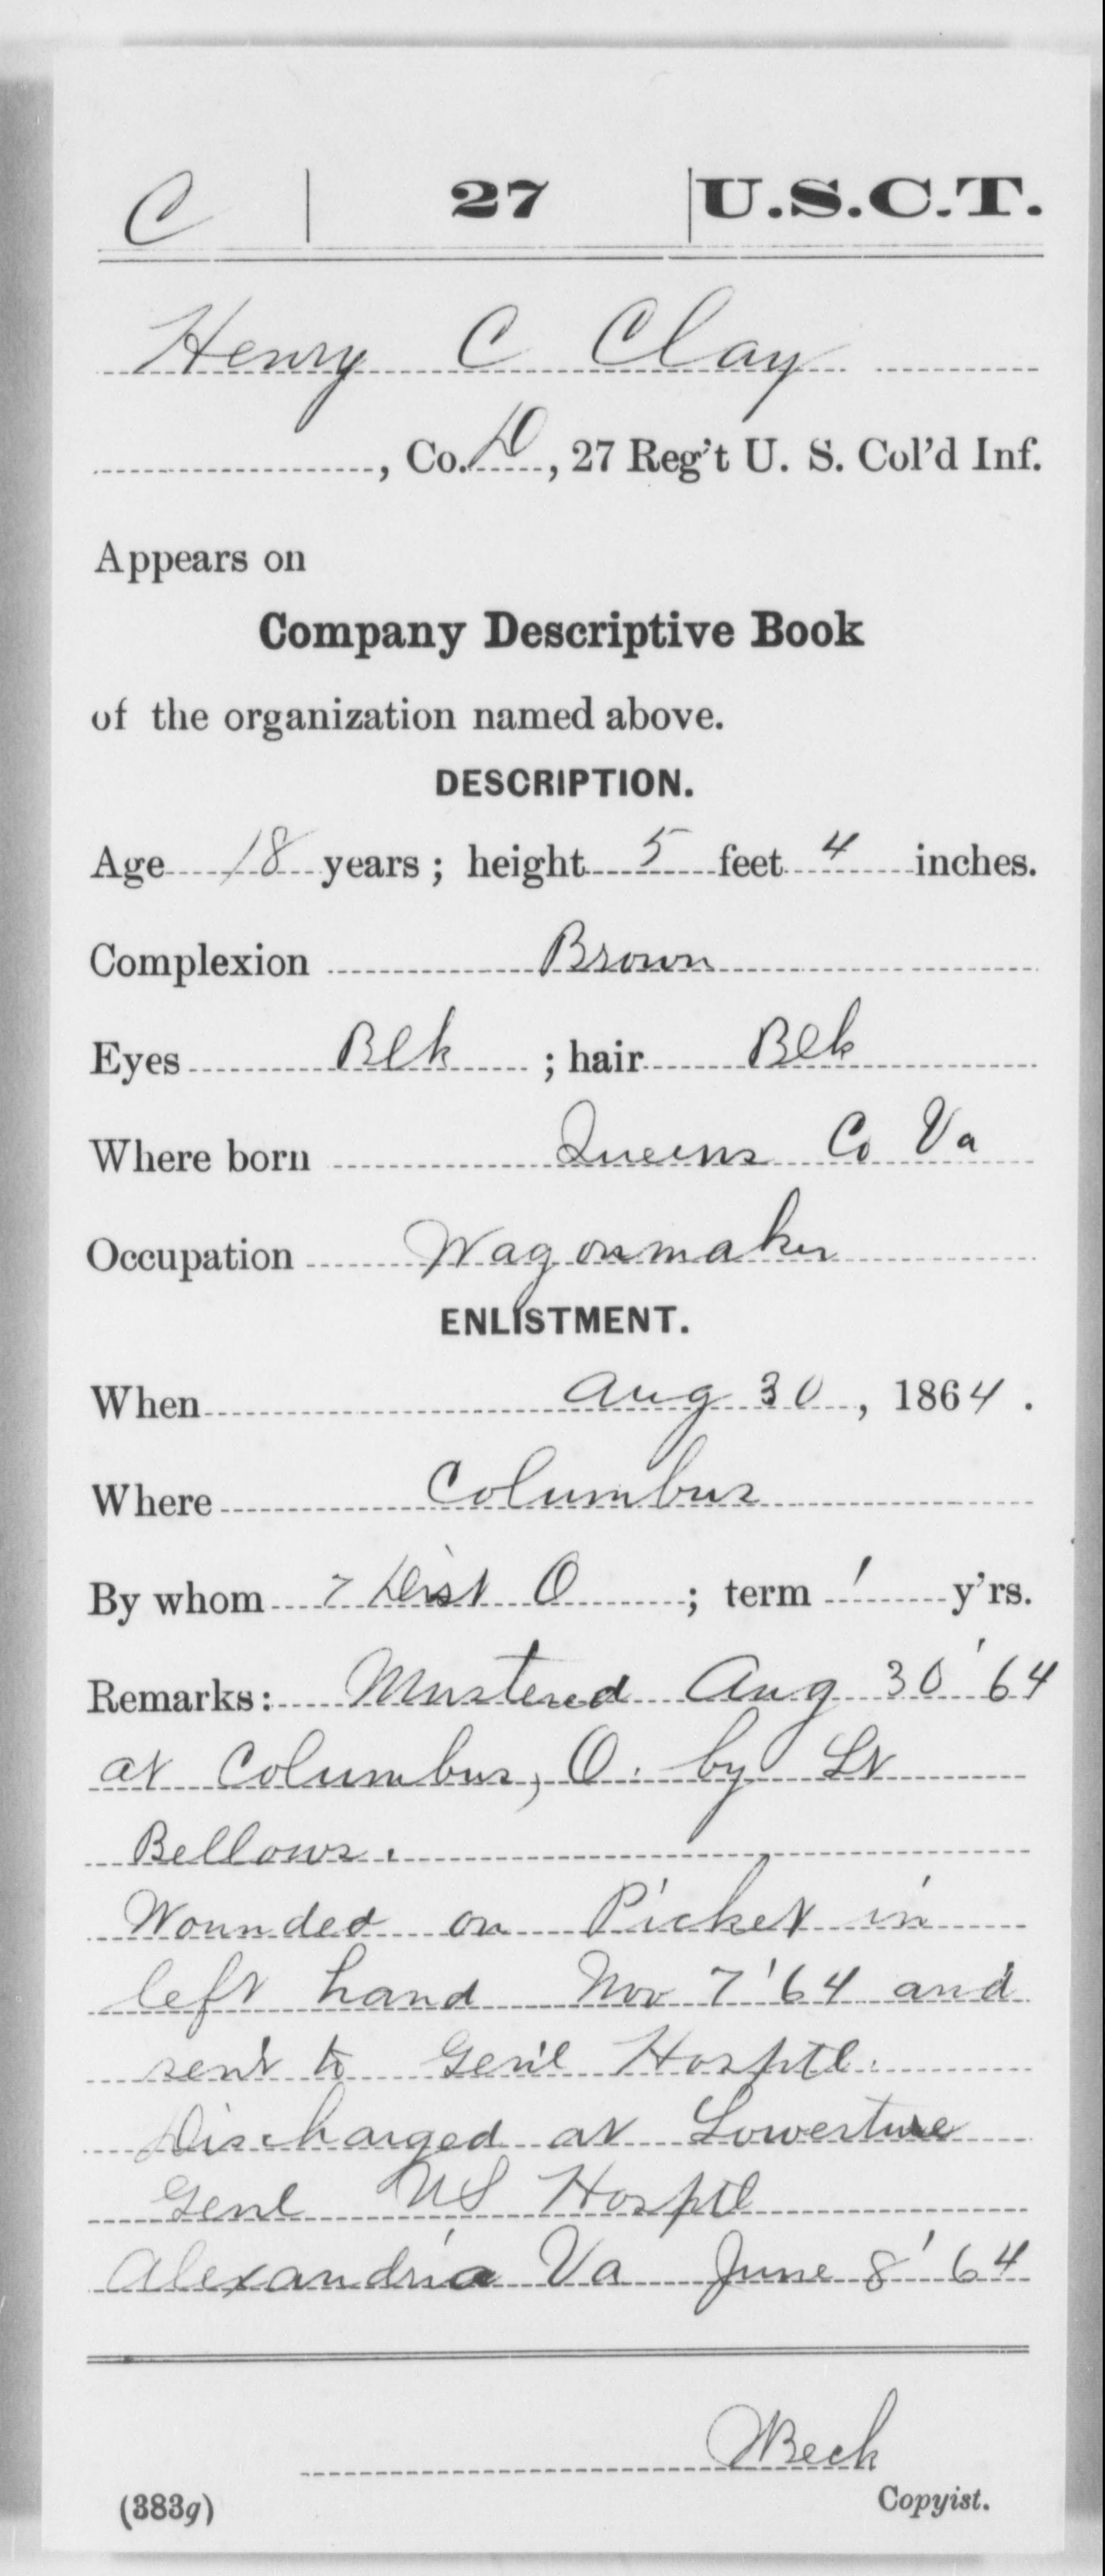 C | 27 | U.S.C.T.
Henry C Clay
, Co. D, 27 Reg't U. S. Col'd Inf.
Appears on
Company Descriptive Book
of the organization named above.
DESCRIPTION.
Age 18 years; height 5 feet 4 inches.
Complexion Brown
Eyes Blk ; hair Blk
Where born Queens Co Va
Occupation Wagonmaker
ENLISTMENT.
When Aug 30, 1864.
Where Columbus
By whom 7 Dist O ; term 1 y'rs.
Remarks: Mustered Aug 30 '64
at Columbus, O. by Lt
Bellows.
Wounded on Picket in
left hand Nov 7 '64 and
sent to Gen'l Hosptl.
Discharged at Lowerture
Genl US Hosptl
Alexandria Va June 8 '64
Beck
(383g) Copyist.